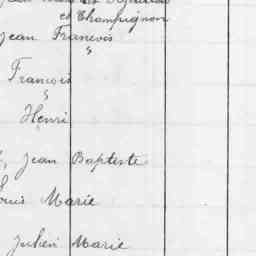 et Champignon
Jean Francois
"
Francois
"
Henri
Jean Baptiste
Louis Marie
Julien Marie